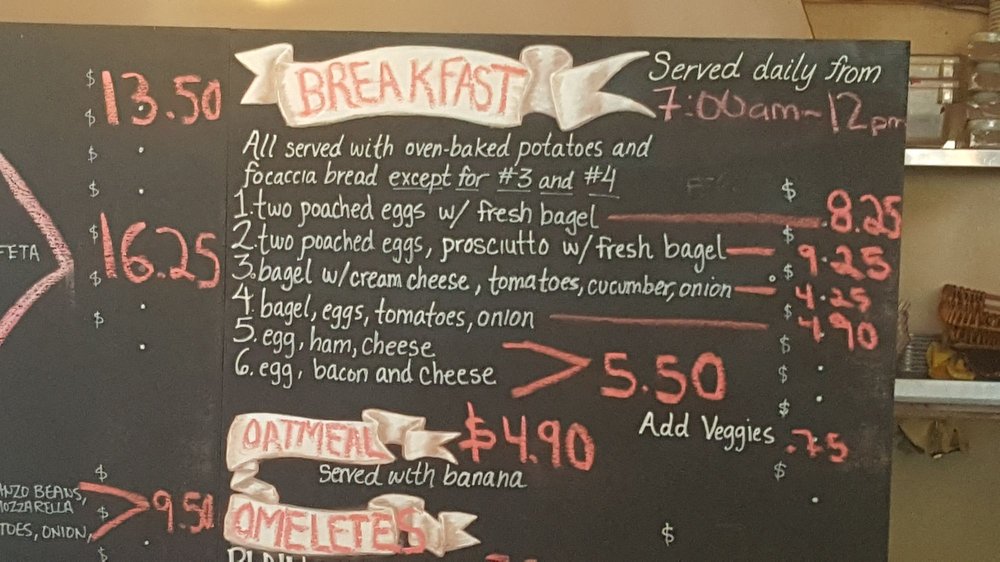 $ 13.50
$
$
$
$ 16.25
FETA
$
$
BREAKFAST
Served daily from
7:00am~12pm
All served with oven-baked potatoes and
focaccia bread except for #3 and #4
1. two poached eggs w/ fresh bagel $ 8.25
2. two poached eggs, prosciutto w/ fresh bagel $ 9.25
3. bagel w/cream cheese, tomatoes, cucumber, onion $ 4.25
4. bagel, eggs, tomatoes, onion $ 4.90
5. egg, ham, cheese $
6. egg, bacon and cheese $
5.50
$
Add Veggies .75
$
OATMEAL $4.90
Served with banana
$
NZO BEANS,
MOZZARELLA $
TOES, ONION,
9.50
$
OMELETES
$